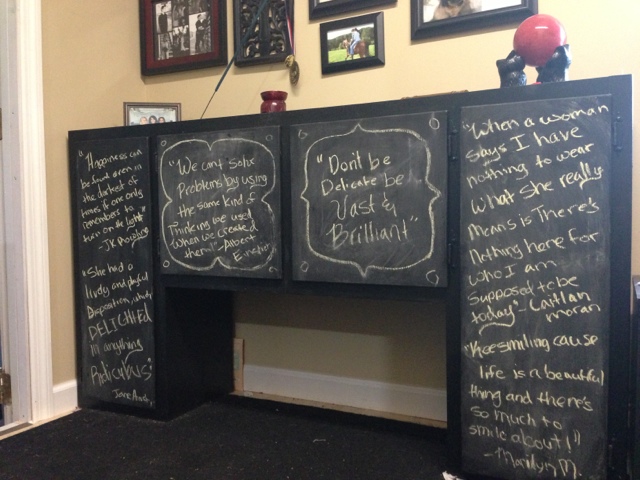 "Happiness can
be found even in
the darkest of
times if one only
remembers to
turn on the light"
-JK Rowling
"She had a
lively and playful
Disposition, which
DELIGHTED
in anything
Ridiculous"
Jane Austen
"We cant solve
Problems by using
the same kind of
Thinking we used
when we created
them!" -Albert
Einstien
"Don't be
Delicate be
Vast &
Brilliant"
"When a woman
says I have
nothing to wear
What she really
means is There's
Nothing here for
who I am
Supposed to be
today" - Caitlan
moran
"Keesmiling cause
life is a beautiful
thing and there's
so much to
smile about!"
-Marilyn M.